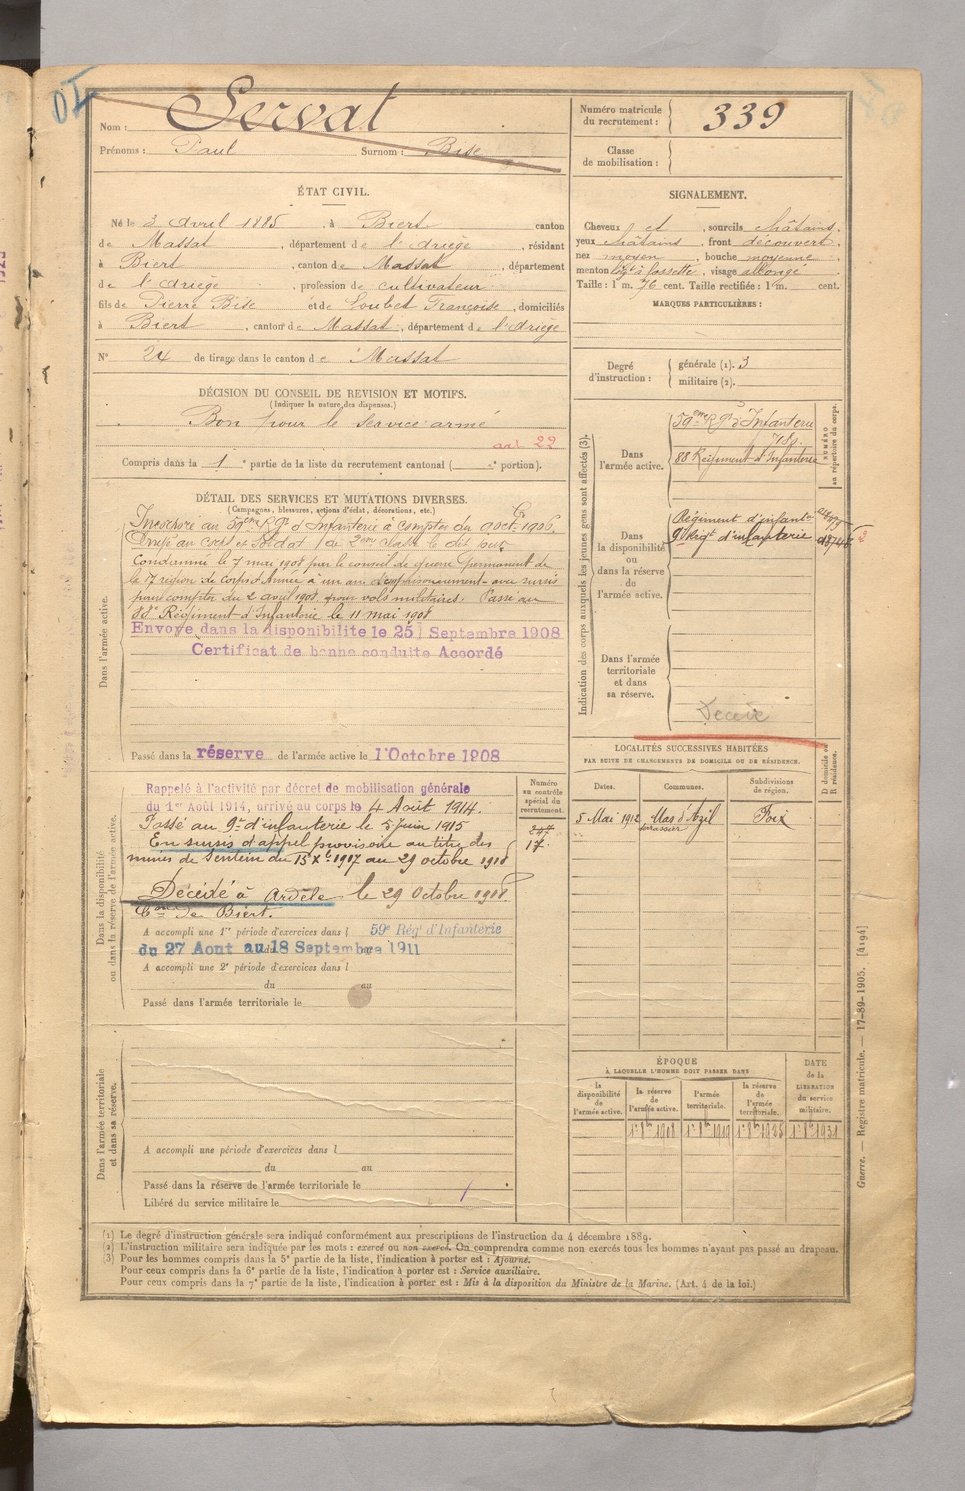 Nom : Servat
Prénoms : Paul Surnom : Bise
Numéro matricule du recrutement : 339
Classe de mobilisation :
ÉTAT CIVIL.
Né le 3 avril 1885, à Biert canton
de Massat, département de l'Ariège, résidant
à Biert, canton de Massat, département
de l'Ariège, profession de cultivateur
fils de Pierre Bise et de Loubet Françoise, domiciliés
à Biert, canton de Massat, département de l'Ariège
N° 24 de tirage dans le canton de Massat
SIGNALEMENT.
Cheveux et, sourcils châtains,
yeux châtains, front découvert,
nez moyen, bouche moyenne
menton à fossette, visage allongé
Taille : 1 m. 76 cent. Taille rectifiée : 1 m. cent.
MARQUES PARTICULIÈRES :
Degré d'instruction :
générale (1). 3
militaire (2).
DÉCISION DU CONSEIL DE REVISION ET MOTIFS.
(Indiquer la nature des dispenses.)
Bon pour le service armé
art 22
Compris dans la 1e partie de la liste du recrutement cantonal ( e portion).
DÉTAIL DES SERVICES ET MUTATIONS DIVERSES.
(Campagnes, blessures, actions d'éclat, décorations, etc.)
Dans l'armée active.
Incorporé au 59eme Rgt d'Infanterie à compter du 9 oct. 1906.
au corps et Soldat de 2eme classe le dit jour
Condamné le 7 mai 1908 par le conseil de guerre permanent de
la 17 région de Corps d'Armée à un an d'emprisonnement avec sursis
pour compter du 2 avril 1908, pour vols militaires. Passé au
88e Régiment d'Infanterie le 11 mai 1908
Envoyé dans la disponibilité le 25 Septembre 1908
Certificat de bonne conduite Accordé
Passé dans la réserve de l'armée active le 1 Octobre 1908
Dans la disponibilité ou dans la réserve de l'armée active.
Rappelé à l'activité par décret de mobilisation générale
du 1er Août 1914, arrivé au corps le 4 Août 1914.
Passé au 9e d'infanterie le 5 Juin 1915
En sursis d'appel provisoire au titre des
mines de Sentein du 15 Xbre 1917 au 29 octobre 1918
Décédé à Ardèle le 29 Octobre 1918.
Cne de Biert.
A accompli une 1re période d'exercices dans l 59e Rég' d'Infanterie
du 27 Aout au 18 Septembre 1911
A accompli une 2e période d'exercices dans l
du au
Passé dans l'armée territoriale le
Numéro au contrôle spécial du recrutement.
247
17
Dans l'armée territoriale et dans sa réserve.
A accompli une période d'exercices dans l
du au
Passé dans la réserve de l'armée territoriale le
Libéré du service militaire le
Indication des corps auxquels les jeunes gens sont affectés (3).
NUMÉRO au répertoire du corps.
Dans l'armée active.
59eme Rgt d'Infanterie
7189.
88 Régiment d'Infanterie
Dans la disponibilité ou dans la réserve de l'armée active.
Régiment d'infant.
9e Régt d'infanterie
Dans l'armée territoriale et dans sa réserve.
Décédé
LOCALITÉS SUCCESSIVES HABITÉES
PAR SUITE DE CHANGEMENTS DE DOMICILE OU DE RÉSIDENCE.
Dates. Communes. Subdivisions de région. D domicile ou R résidence.
5 Mai 1912 Mas d'Azil Foix
ÉPOQUE
À LAQUELLE L'HOMME DOIT PASSER DANS
la disponibilité de l'armée active.
la réserve de l'armée active.
l'armée territoriale.
la réserve de l'armée territoriale.
DATE de la LIBÉRATION du service militaire.
(1) Le degré d'instruction générale sera indiqué conformément aux prescriptions de l'instruction du 4 décembre 1889.
(2) L'instruction militaire sera indiquée par les mots : exercé ou non exercé. On comprendra comme non exercés tous les hommes n'ayant pas passé au drapeau.
(3) Pour les hommes compris dans la 5e partie de la liste, l'indication à porter est : Ajourné.
Pour ceux compris dans la 6e partie de la liste, l'indication à porter est : Service auxiliaire.
Pour ceux compris dans la 7e partie de la liste, l'indication à porter est : Mis à la disposition du Ministre de la Marine. (Art. 4 de la loi.)
Guerre. — Registre matricule. — 17-89-1905. [4194]